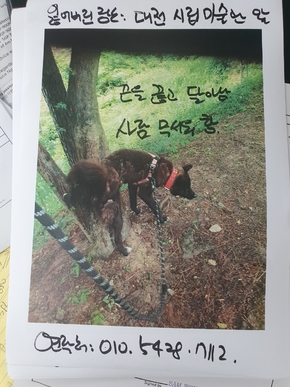 잃어버린 장소: 대전 시립 미술관 앞
끈을 끊고 달아남
사람 무서워 함
연락처: 010. 5428. 7112.